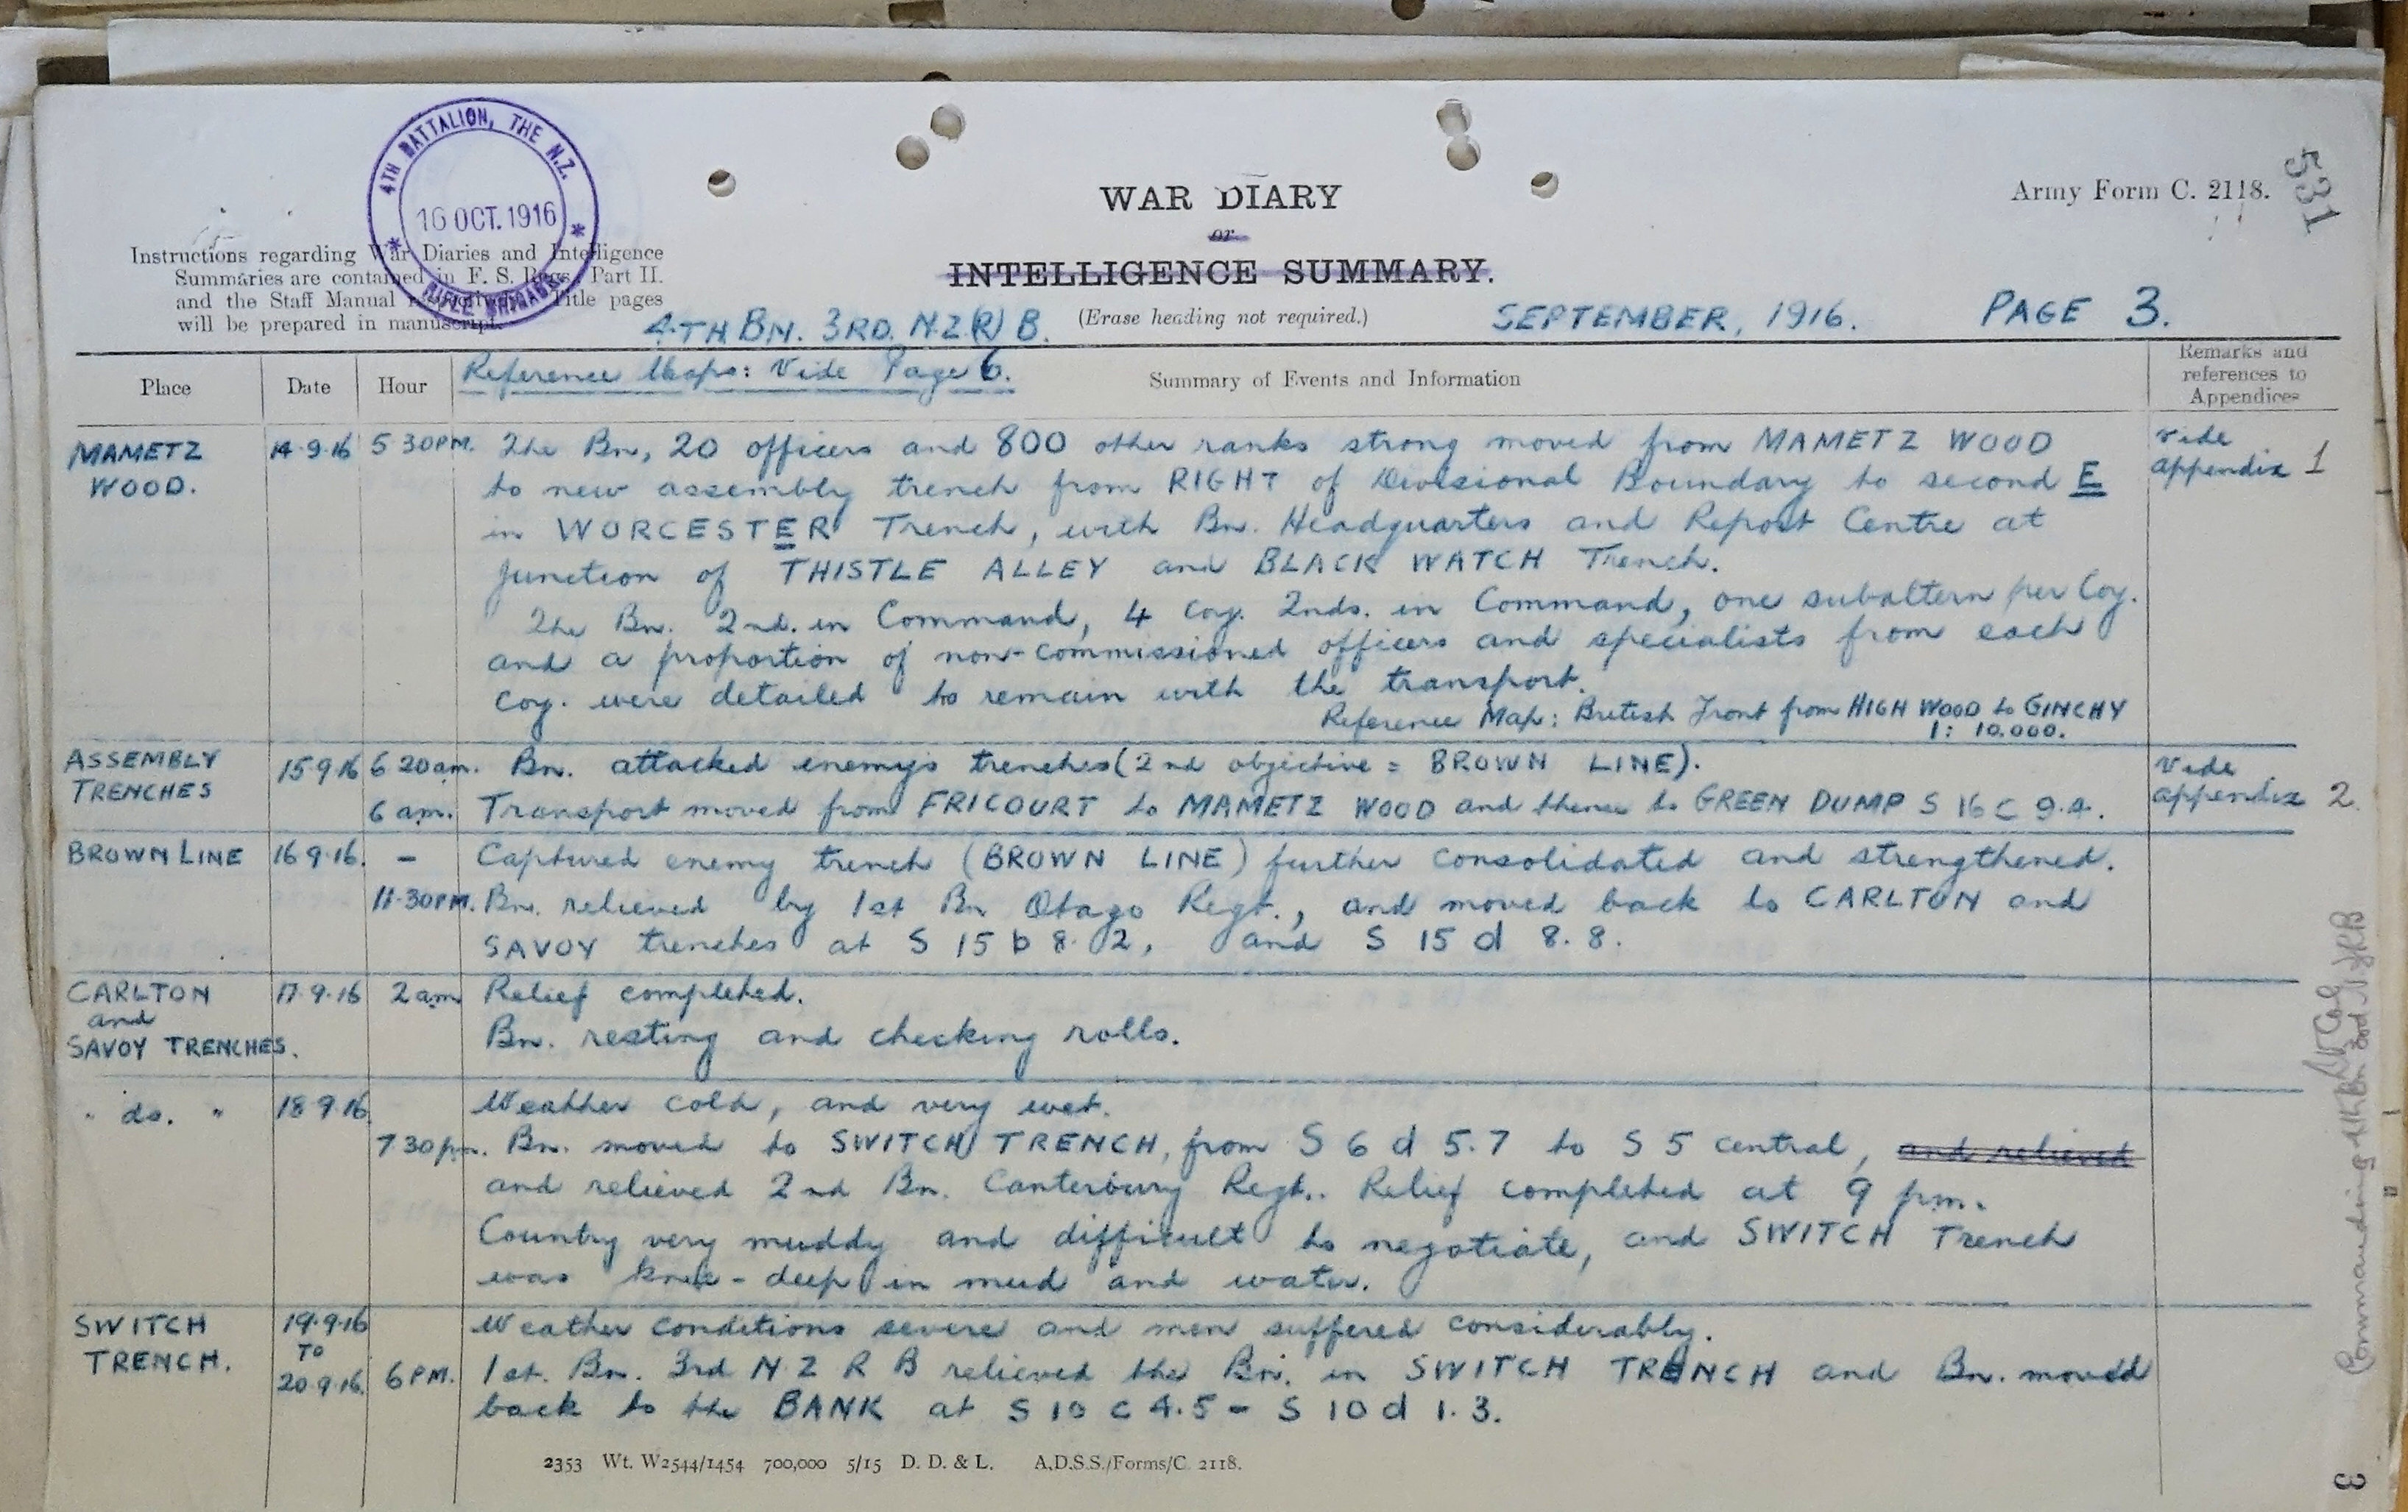 4TH BATTALION, THE N.Z.
16 OCT. 1916
RIFLE BRIGADE
531
Army Form C. 2118.
WAR DIARY
or
INTELLIGENCE SUMMARY.
(Erase heading not required.)
Instructions regarding War Diaries and Intelligence
Summaries are contained in F. S. Regs., Part II.
and the Staff Manual Title pages
will be prepared in manuscript.
4TH BN. 3RD. N.Z.(R) B.
SEPTEMBER, 1916.
PAGE 3.
Place
Date
Hour
Reference Maps: Vide Page 6.
Summary of Events and Information
Remarks and
references to
Appendices
MAMETZ
WOOD.
14.9.16 5 30PM. The Bn, 20 officers and 800 other ranks strong moved from MAMETZ WOOD
to new assembly trench from RIGHT of Divisional Boundary to second E
in WORCESTER Trench, with Bn. Headquarters and Report Centre at
junction of THISTLE ALLEY and BLACK WATCH Trench.
The Bn. 2nd. in Command, 4 Coy. 2nds. in Command, one subaltern per Coy.
and a proportion of non-commissioned officers and specialists from each
Coy. were detailed to remain with the transport.
Reference Map: British Front from HIGH WOOD to GINCHY
1: 10.000.
Vide
appendix 1
ASSEMBLY
TRENCHES
15.9.16 6 20am. Bn. attacked enemy's trenches (2nd objective = BROWN LINE).
6 am. Transport moved from FRICOURT to MAMETZ WOOD and thence to GREEN DUMP S 16 C 9.4.
Vide
appendix 2.
BROWN LINE 16 9.16. - Captured enemy trench (BROWN LINE) further consolidated and strengthened.
11.30PM. Bn. relieved by 1st Bn Otago Regt., and moved back to CARLTON and
SAVOY trenches at S 15 b 8.2, and S 15 d 8.8.
CARLTON
and
SAVOY TRENCHES.
17.9.16 2am Relief completed.
Bn. resting and checking rolls.
" do. " 18.9.16 Weather cold, and very wet.
7.30pm. Bn. moved to SWITCH TRENCH, from S 6 d 5.7 to S 5 central, and relieved
and relieved 2nd Bn. Canterbury Regt.. Relief completed at 9 pm.
Country very muddy and difficult to negotiate, and SWITCH Trench
was knee-deep in mud and water.
SWITCH
TRENCH.
19.9.16
TO
20.9.16.
Weather conditions severe and men suffered considerably.
6 PM. 1st. Bn. 3rd N Z R B relieved the Bn. in SWITCH TRENCH and Bn. moved
back to the BANK at S 10 c 4.5 - S 10 d 1.3.
Commanding 4th Bn 3rd NZRB
2353 Wt. W2544/1454 700,000 5/15 D. D. & L. A.D.S.S./Forms/C. 2118.
3